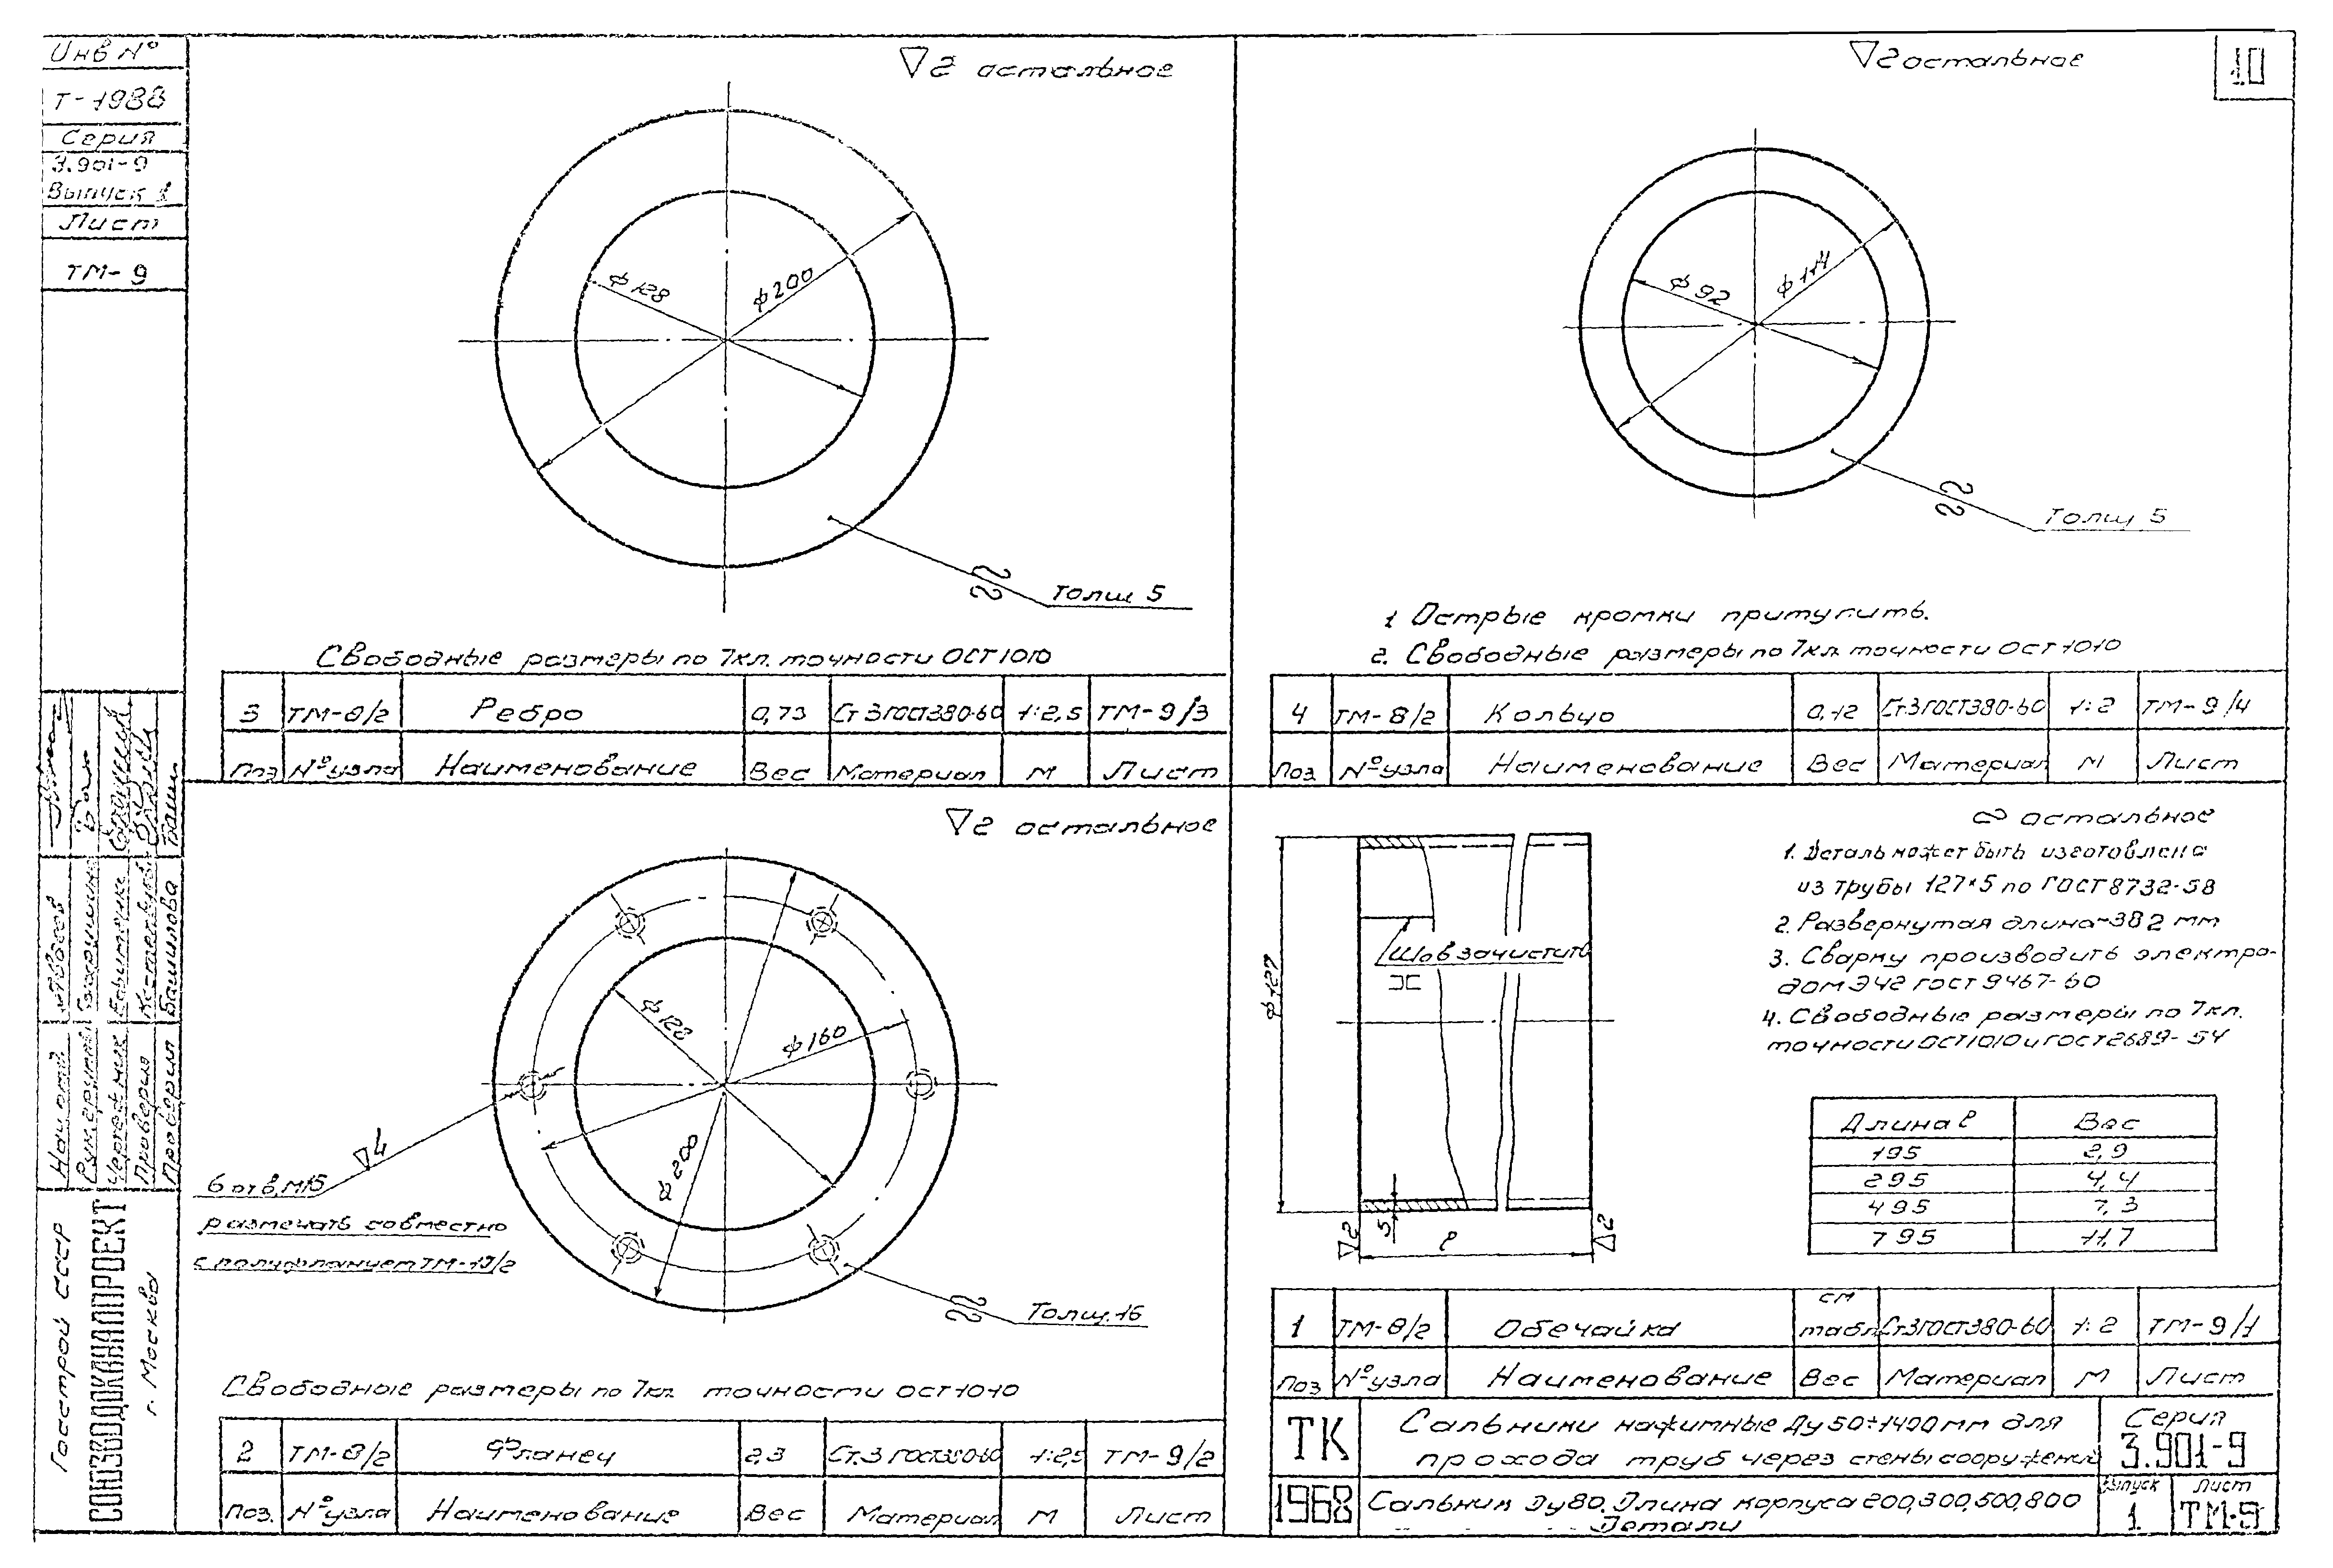 Инв №
Т-1988
Серия
3.901-9
Выпуск 1
Лист
ТМ-9
10
▽2 остальное
ф128
ф200
Толщ 5
Свободные размеры по 7кл. точности ОСТ1010
3 ТМ-8/2 Ребро 0,73 Ст3ГОСТ380-60 1:2,5 ТМ-9/3
Поз №узла Наименование Вес Материал М Лист
▽2 остальное
ф92
Толщ 5
1 Острые кромки притупить.
2. Свободные размеры по 7кл. точности ОСТ1010
4 ТМ-8/2 Кольцо 0,12 Ст.3ГОСТ380-60 1:2 ТМ-9/4
Поз. №узла Наименование Вес Материал М Лист
▽2 остальное
ф128
ф160
ф200
▽4
6 отв. М16
размечать совместно
с полуфланцем ТМ-19/2
Толщ.16
Свободные размеры по 7кл. точности ОСТ1010
2 ТМ-8/2 Фланец 2,3 Ст.3 ГОСТ380-60 1:2,5 ТМ-9/2
Поз. №узла Наименование Вес Материал М Лист
∾ остальное
1. Деталь может быть изготовлена
из трубы 127×5 по ГОСТ8732-58
2. Развернутая длина~382 мм
3. Сварку производить электро-
дом Э42 ГОСТ9467-60
4. Свободные размеры по 7кл.
точности ОСТ1010 и ГОСТ2689-54
ф127
Шов зачистить
5
▽2
ℓ
▽2
Длина ℓ Вес
195 2,9
295 4,4
495 7,3
795 11,7
1 ТМ-8/2 Обечайка см табл Ст3ГОСТ380-60 1:2 ТМ-9/1
Поз №узла Наименование Вес Материал М Лист
ТК
Сальники нажимные Ду50÷1400мм для
прохода труб через стены сооружений
Серия
3.901-9
1968
Сальник Ду80. Длина корпуса 200,300,500,800
Детали
Выпуск
1
Лист
ТМ-9
Проверил
Проверил
Башилова
Госстрой СССР
СОЮЗВОДОКАНАЛПРОЕКТ
г. Москва